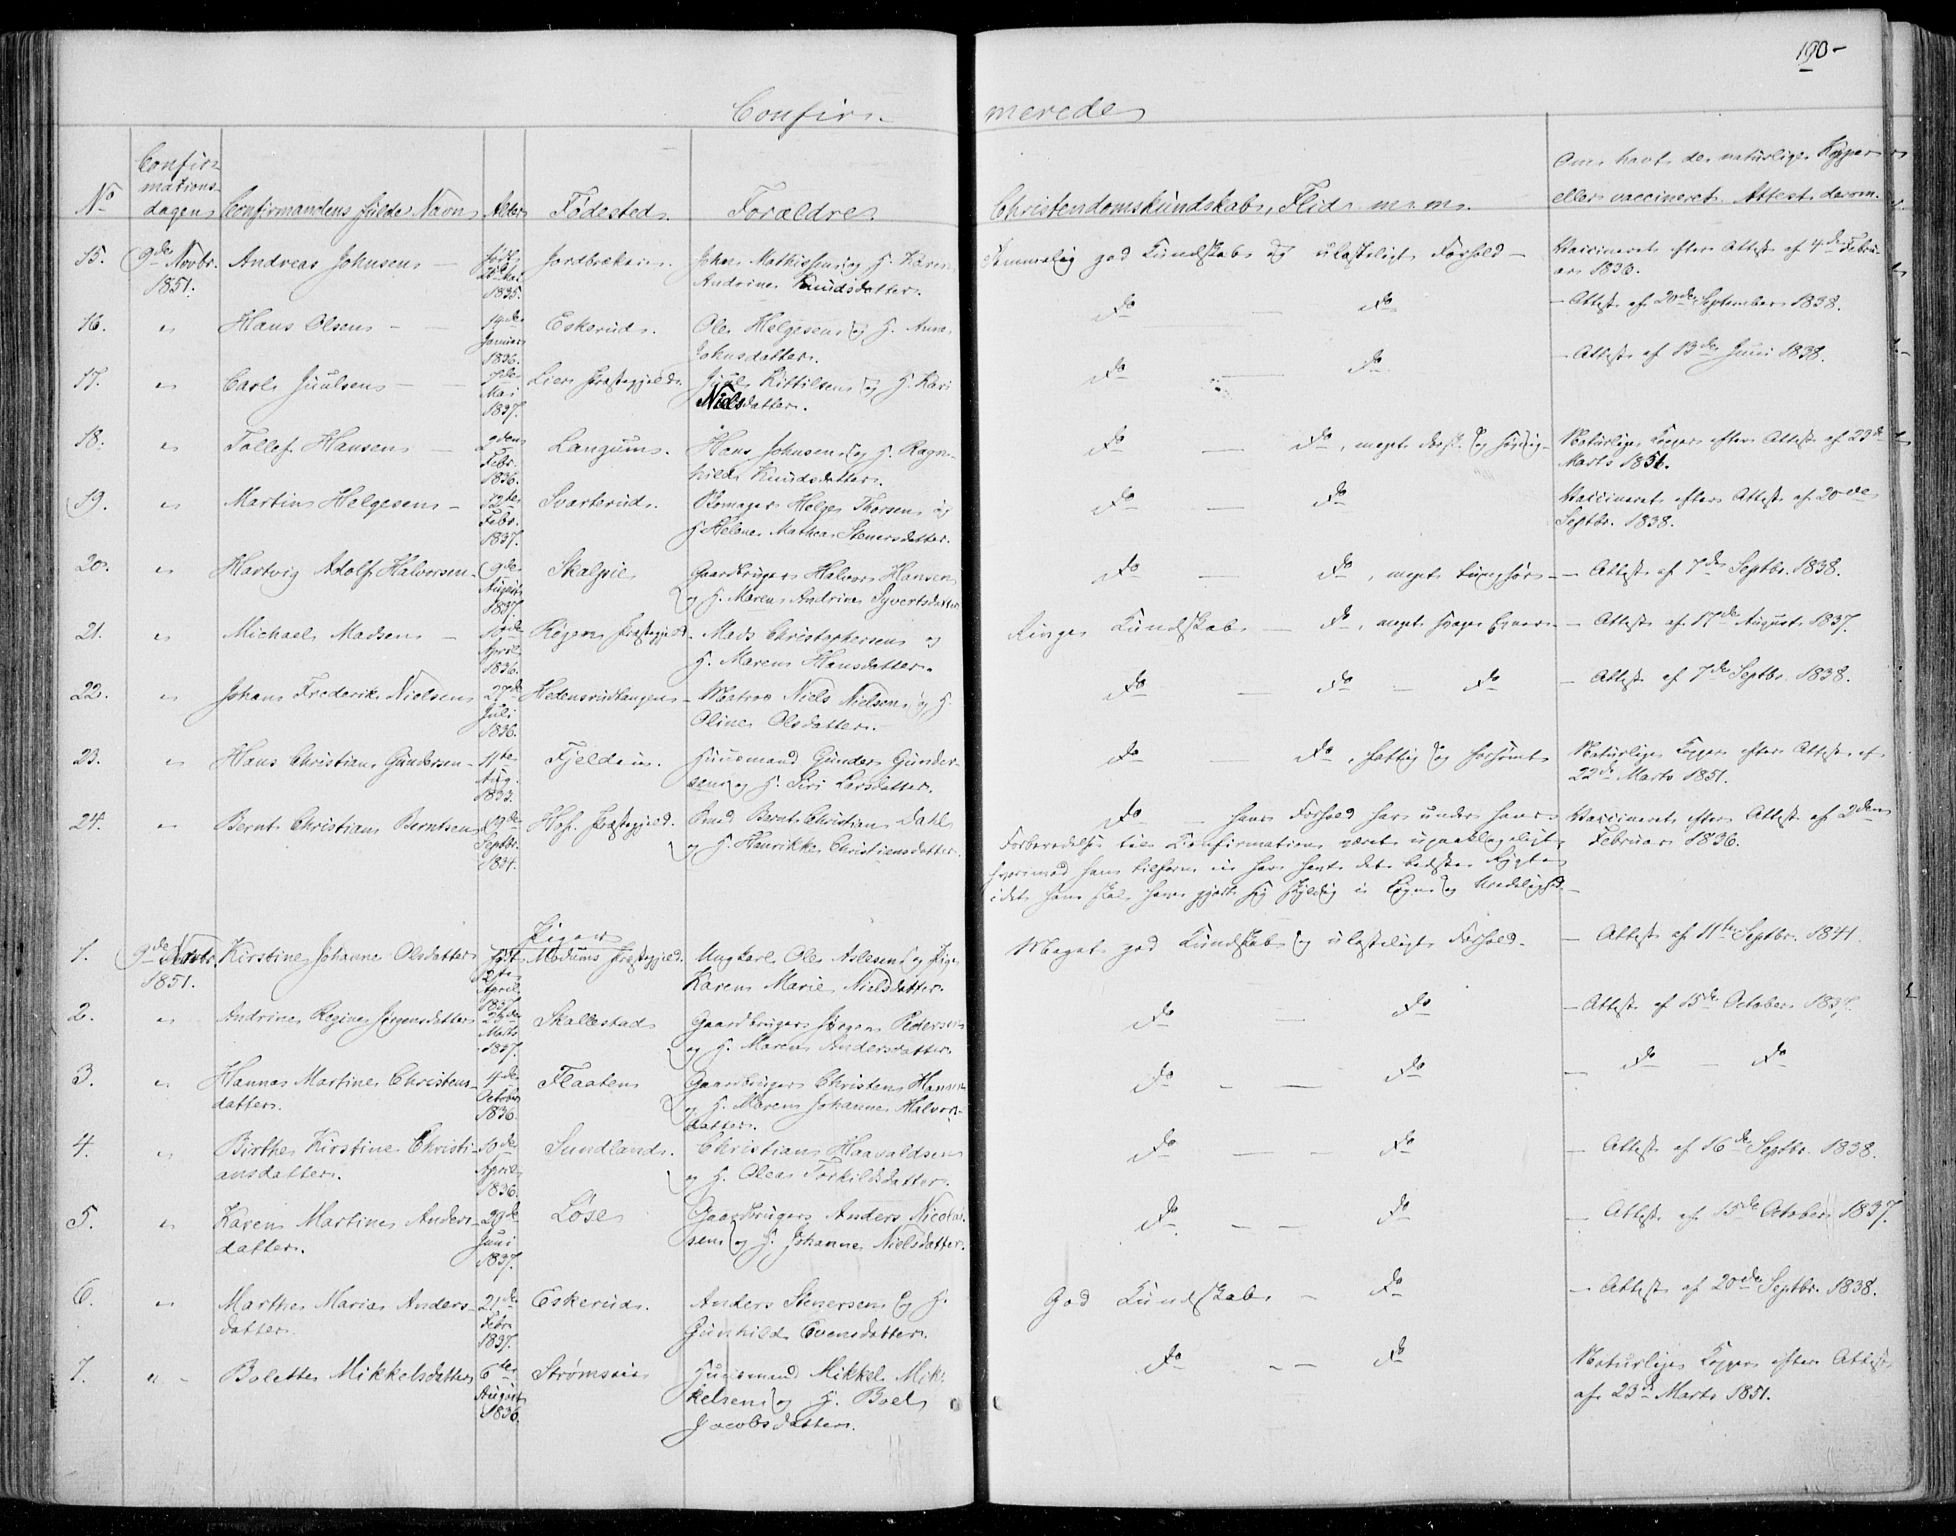 190-
Confir-
merede
Confir-
mations-
dagen
No
Confirmandens fulde Navn
Alder
Fødested.
Forældre.
Christendomskundskab, Flid m. m.
Om havt de naturlige Kopper
eller vaccineret. Attest derom.
15. 9de Novbr. Andreas Johnsen — Jordbrækken. Johan Mathissen og H. Karen Temmelig god Kundskab og ulasteligt Forhold — Vaccineret efter Attest af 4de Febru-
1851. 1835. Andrine Knudsdatter. ar 1836.
16. " Hans Olsen — 14de Eskerud. Ole Helgesen og H. Anne Do — Do — Attest af 20de September 1838.
Januar
1836. Johnsdatter.
17. " Carl Juulsen — Mai Lier Præstegjeld. Juul Kittilsen og H. Kari Do — Do — Attest af 13de Juni 1838.
1837. Nielsdatter.
18. " Tollef Hansen — 2den Langum. Hans Johnsen og H. Ragn- Do Do, meget Naturlige Kopper efter Attest af 23de
Febr.
1836. hild Knudsdatter. Marts 1851.
19. " Martin Helgesen — 12te Svarterud. Helge Thorsen og Do — Do Vaccineret efter Attest af 20de
Febr.
1837. H. Helene Mathea Stenersdatter. Septbr. 1838.
20. " Hartvig Adolf Halvorsen 9de Skalpie Gaardbruger Halvor Hansen Do — Do, meget tunghør — Attest af 7de Septbr. 1838.
August
1837. og H. Maren Andrine Syvertsdatter
21. " Michael Madsen — Røgen Præstegjeld. Mads Christophersen og Ringe Kundskab — Do, meget svage Evner — Attest af 17de August 1837.
April
1836. H. Maren Hansdatter.
22. " Johan Frederik Nielsen 27de Hedensrudtangen Matros Niels Nielsen og H. Do — Do — Do — Attest af 7de Septbr. 1838.
Juli
1836. Oline Olsdatter.
23. " Hans Christian Gundersen 11te Fjelden. Huusmand Gunder Gunder- Do — Do, fattig og forsømt Naturlige Kopper efter Attest af
Aug.
1833. sen og H. Siri Larsdatter. 22de Marts 1851.
24. " Bernt Christian Berntsen 19de Hof Præstegjeld. Bernt Christian Dahl Do — hans Forhold har under hans Vaccineret efter Attest af 2den
Septbr.
1834. og H. Henrikke Christiansdatter. Forberedelse til Confirmation været upaaklageligt, Februar 1836.
hvorimod han tilforn ei har havt det bedste Rygte
idet han skal have gjort sig skyldig i Løgn og Uredelighed.
Piger
1. 9de Novbr. Kirstine Johanne Olsdatter født Modums Præstegjeld. Ungkarl Ole Aslesen og Pige Meget god Kundskab og ulasteligt Forhold. — Attest af 11te Septbr. 1841.
1851. 12te April 1837. Karen Marie Nielsdatter.
2. " Andrine Regine Jørgensdatter Skallestad Gaardbruger Jørgen Pedersen Do — Do — Attest af 15de October 1837.
Marts
1837. og H. Maren Andersdatter.
3. " Hanna Martine Christens- 4de Flaaten Gaardbruger Christen Hansen Do — Do — Do — Do
datter. October
1836. og H. Maren Johanne Halvors-
datter.
4. " Birthe Kirstine Christi- 10de Sundland. Christian Haavaldsen Do — Do — Attest af 16de Septbr. 1838.
ansdatter. April
1836. og H. Olea Torkildsdatter.
5. " Karen Martine Anders- 29de Løse Gaardbruger Anders Nicolai- Do — Do — Attest af 15de October 1837.
datter. Juni
1837. sen og H. Johanne Nielsdatter.
6. " Marthe Maria Anders- 21de Eskerud. Anders Stenersen og H. God Kundskab — Do — Attest af 20de Septbr. 1838.
datter. Febr.
1837. Gunhild Evensdatter.
7. " Bolette Mikkelsdatter 6te Strømsøie Huusmand Mikkel Mik- Do — Do Naturlige Kopper efter Attest
August
1836. kelsen og H. Boel af 23de Marts 1851.
Jacobsdatter.